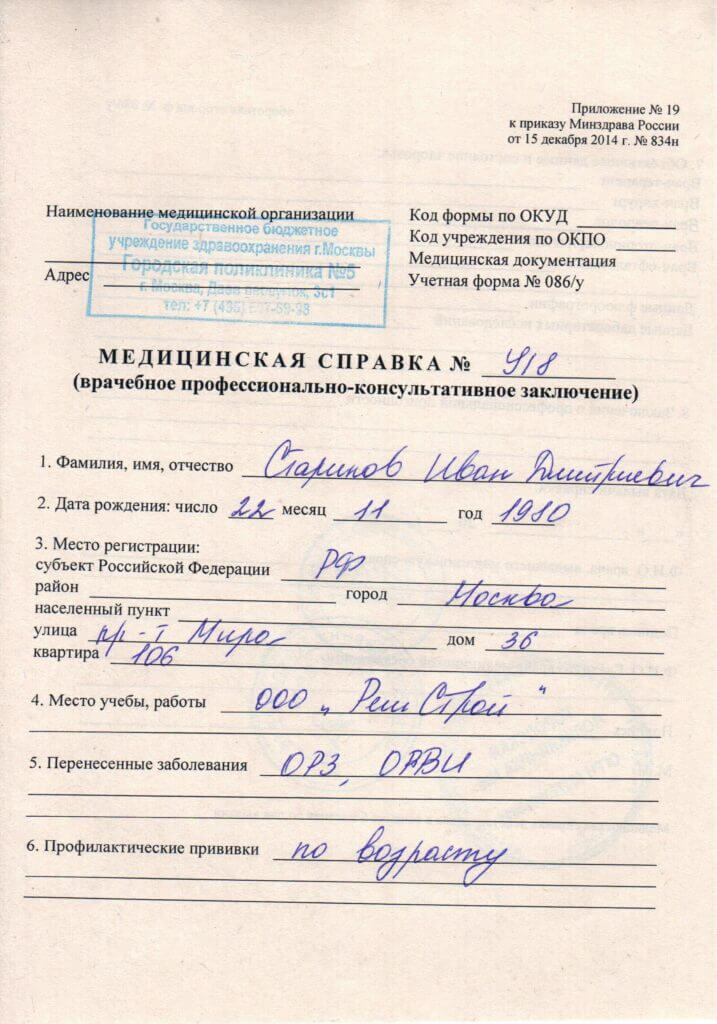 Приложение № 19
к приказу Минздрава России
от 15 декабря 2014 г. № 834н
Наименование медицинской организации
Государственное бюджетное
учреждение здравоохранения г.Москвы
Городская поликлиника №5
г. Москва, 3с1
тел: +7
Адрес
Код формы по ОКУД
Код учреждения по ОКПО
Медицинская документация
Учетная форма № 086/у
МЕДИЦИНСКАЯ СПРАВКА № 918
(врачебное профессионально-консультативное заключение)
1. Фамилия, имя, отчество Старинов Иван Дмитриевич
2. Дата рождения: число 22 месяц 11 год 1980
3. Место регистрации:
субъект Российской Федерации РФ
район город Москва
населенный пункт
улица пр-т Мира дом 36
квартира 106
4. Место учебы, работы ООО „РемСтрой"
5. Перенесенные заболевания ОРЗ, ОРВИ
6. Профилактические прививки по возрасту